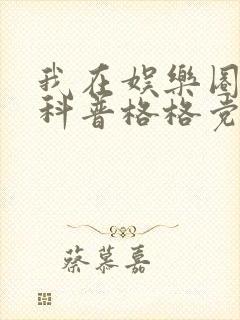 我在娱樂圈
科普格格党
蔡慕嘉